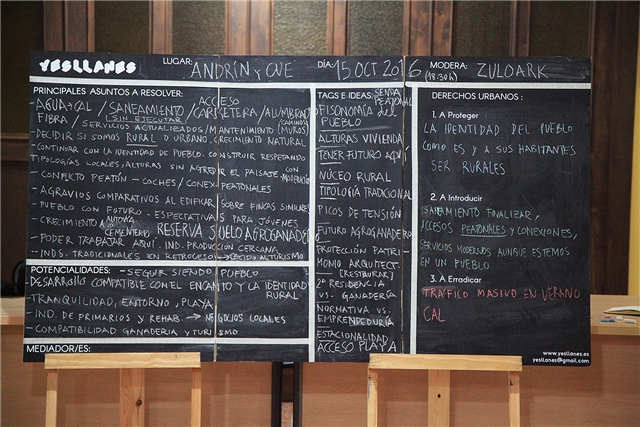 YESLLANES
LUGAR: ANDRÍN y CUE
DÍA: 15 OCT 2016
(18:30h)
MODERA: ZULOARK
PRINCIPALES ASUNTOS A RESOLVER:
- AGUA+CAL / SANEAMIENTO / ACCESO / CARRETERA / ALUMBRADO
SIN EJECUTAR
FIBRA / SERVICIOS ACTUALIZADOS / MANTENIMIENTO CAMINOS (MUROS)
- DECIDIR SI SOMOS RURAL O URBANO. CRECIMIENTO NATURAL
- CONTINUAR CON LA IDENTIDAD DE PUEBLO. CONSTRUIR RESPETANDO
TIPOLOGÍAS LOCALES, ALTURAS SIN AGREDIR EL PAISAJE CON MODERACIÓN
- CONFLICTO PEATÓN - COCHES / CONEX. PEATONALES
- AGRAVIOS COMPARATIVOS AL EDIFICAR SOBRE FINCAS SIMILARES
- PUEBLO CON FUTURO - ESPECTATIVAS PARA JÓVENES
- CRECIMIENTO AUTOVÍA CEMENTERIO RESERVA SUELO AGROGANADERO
- PODER TRABAJAR AQUÍ. IND. PRODUCCIÓN CERCANA
- INDS. TRADICIONALES EN RETROCESO EXCESO ALTURISMO
POTENCIALIDADES: - SEGUIR SIENDO PUEBLO
DESARROLLO COMPATIBLE CON EL ENCANTO Y LA IDENTIDAD RURAL
- TRANQUILIDAD, ENTORNO, PLAYA
- IND. DE PRIMARIOS Y REHAB. → NEGOCIOS LOCALES
- COMPATIBILIDAD GANADERIA y TURISMO
MEDIADOR/ES:
TAGS E IDEAS: SENDA PEATONAL
FISONOMÍA del
PUEBLO
ALTURAS VIVIENDA
TENER FUTURO AQUÍ
NÚCEO RURAL
TIPOLOGÍA TRADICIONAL
PICOS DE TENSIÓN
FUTURO AGROGANADERO
PROTECCIÓN PATRI-
MONIO ARQUITECT.
[RESTAURAR]
2ª RESIDENCIA
VS. GANADERÍA
NORMATIVA VS.
EMPRENDEDURÍA
ESTACIONALIDAD
ACCESO PLAYA
DERECHOS URBANOS:
1. A Proteger
LA IDENTIDAD DEL PUEBLO
COMO ES y A SUS HABITANTES
SER RURALES
2. A Introducir
SANEAMIENTO FINALIZAR,
ACCESOS PEATONALES y CONEXIONES,
SERVICIOS MODERNOS AUNQUE ESTEMOS
EN UN PUEBLO
3. A Erradicar
TRÁFICO MASIVO EN VERANO
CAL
www.yesllanes.es
yesllanes@gmail.com